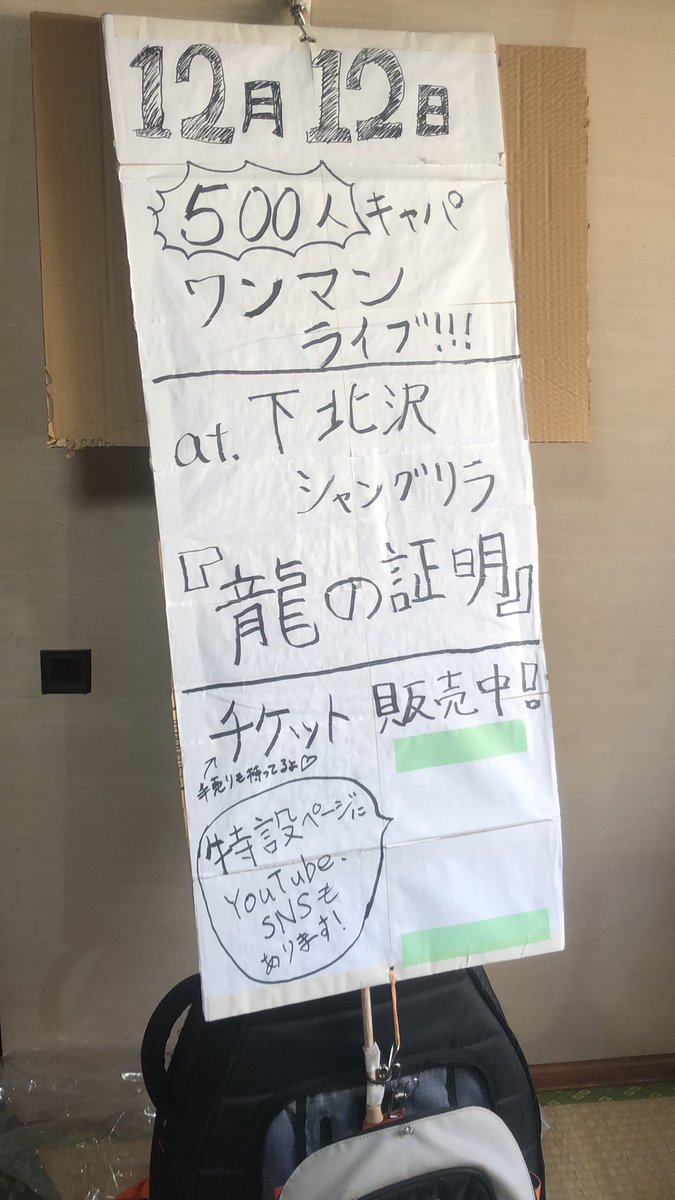 12月12日
500人キャパ
ワンマン
ライブ!!!
at.下北沢
シャングリラ
『龍の証明』
チケット販売中!
↗手売りも待ってるよ♡
特設ページに
YouTube.
SNSも
あります!